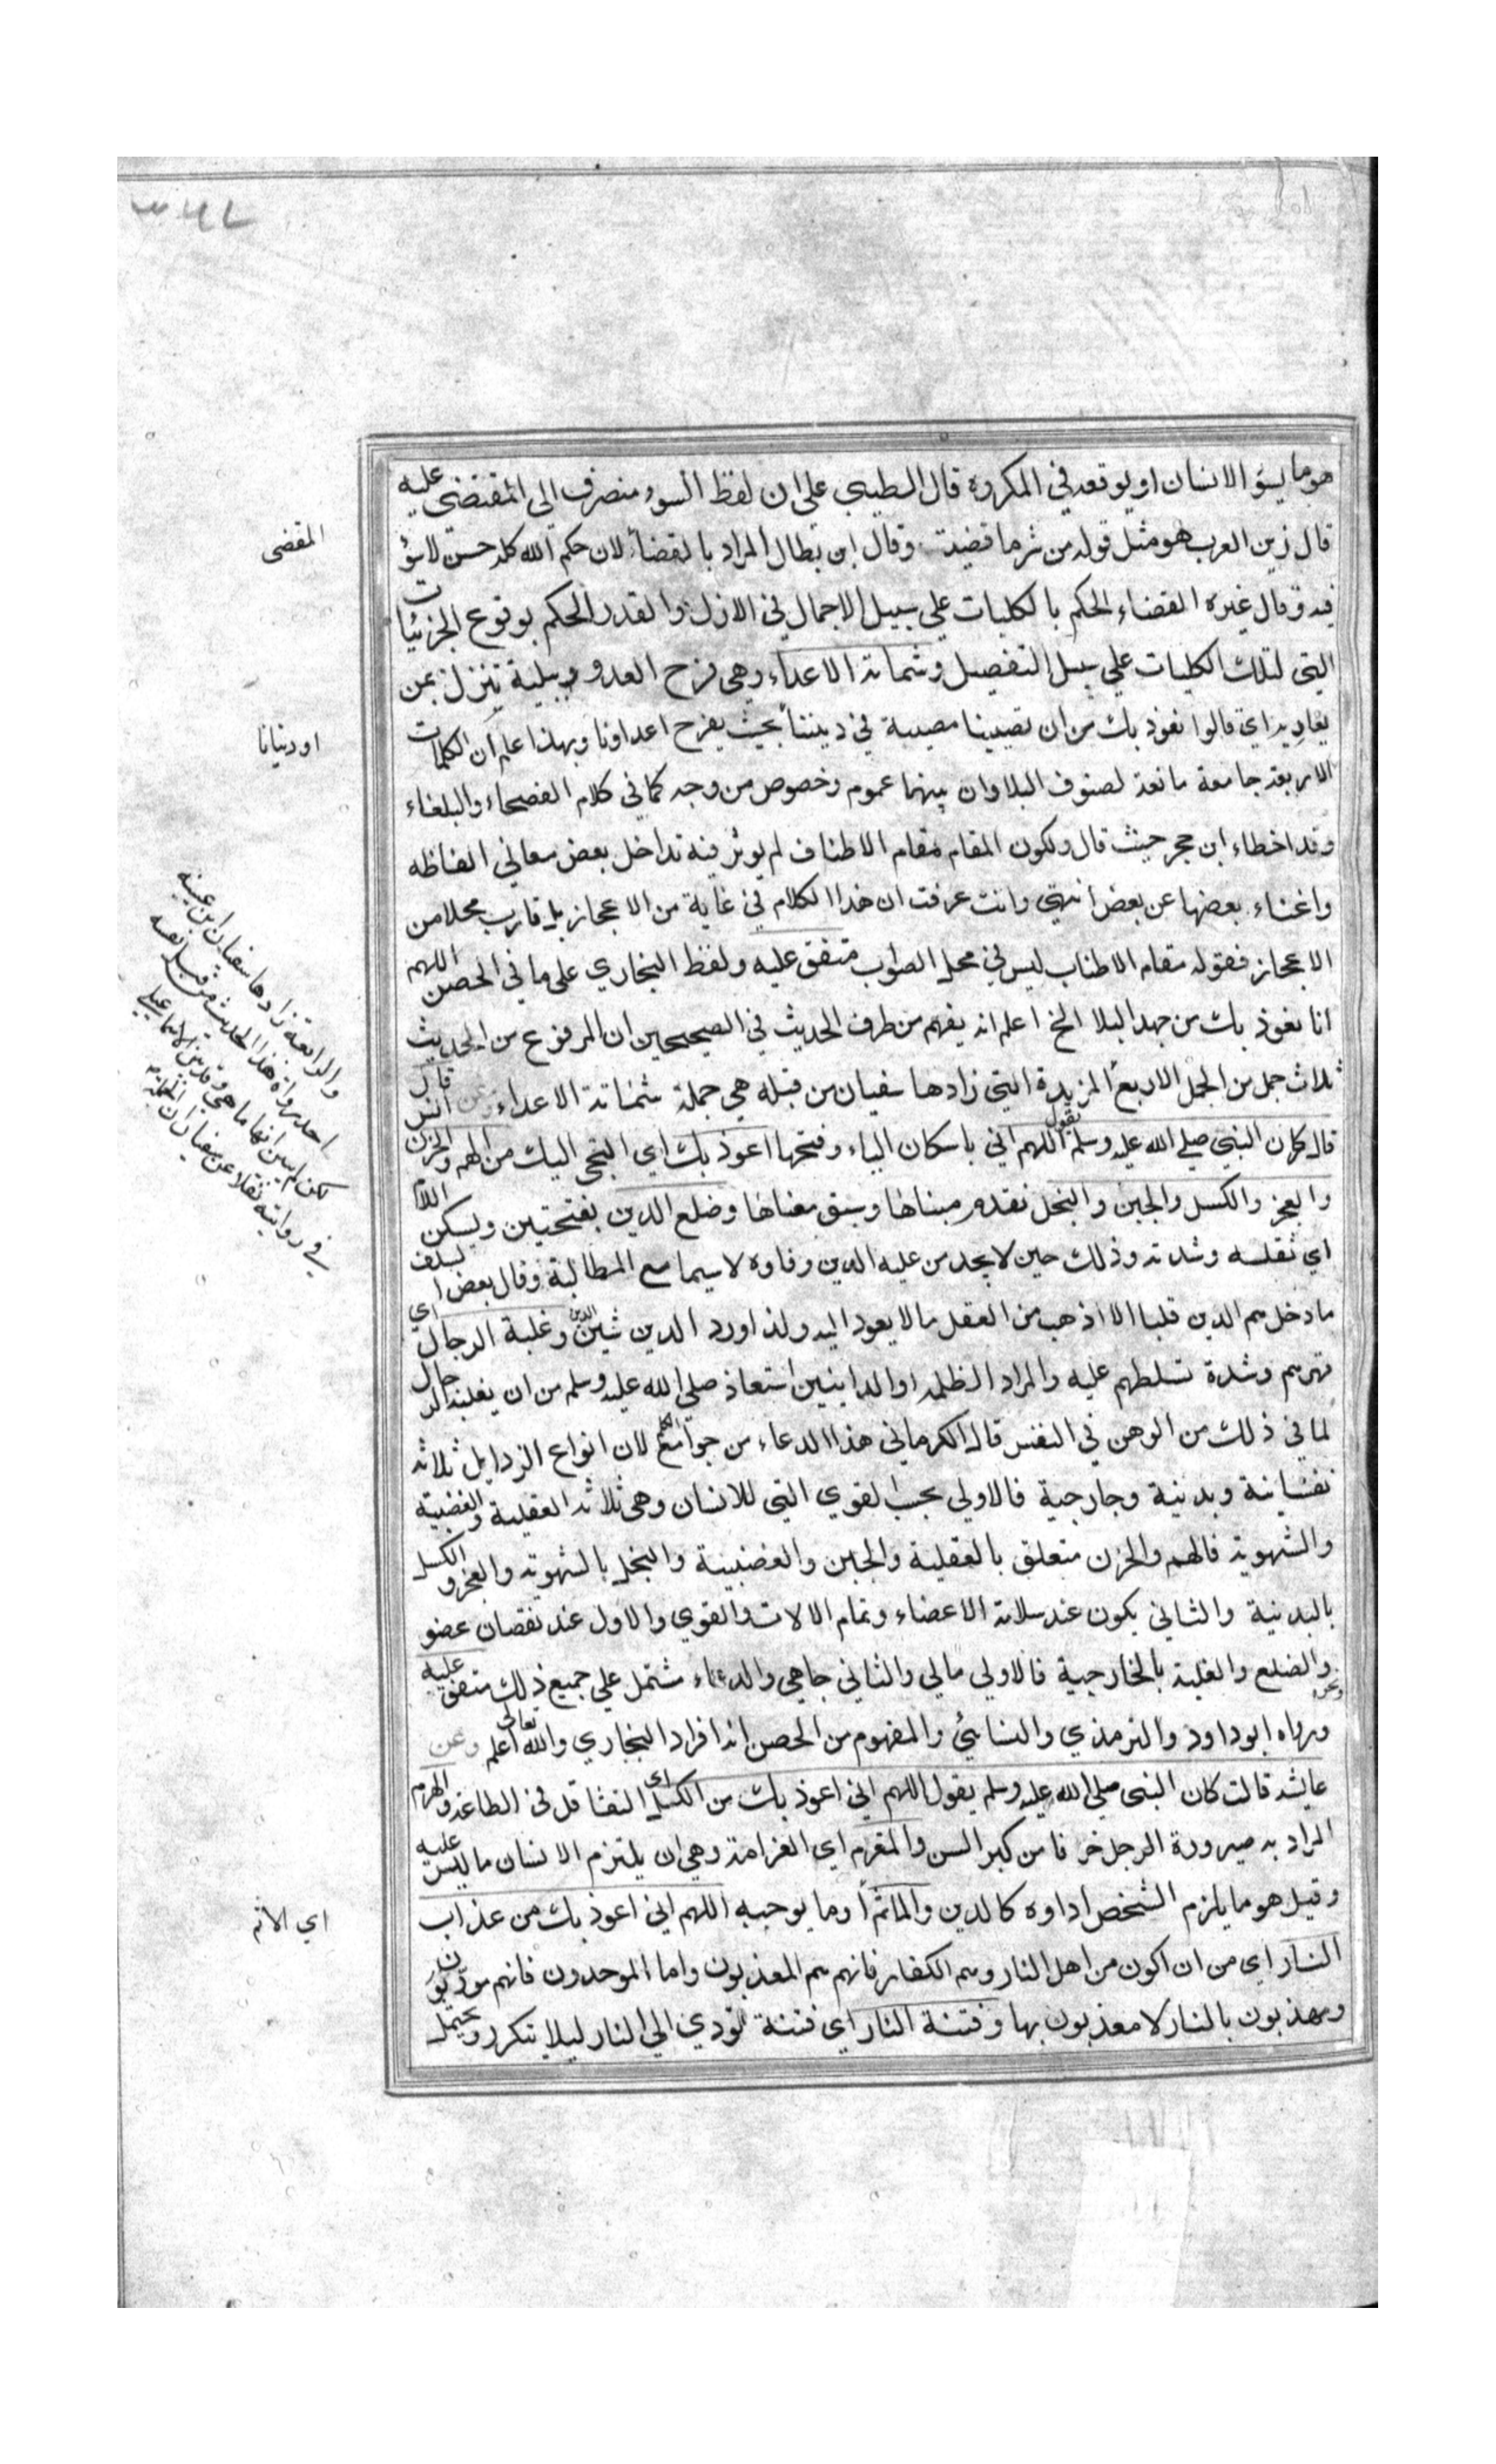 هو ما يسؤ الانسان او يوقعه في المكروه قال الطيبي على ان لفظ السوء منصرف الى المقتضى عليه
قال زين العرب هو مثل قوله من شر ما قضيت وقال ابن بطال المراد بالقضاء لان حكم الله كله حسن لا سؤ
فيه وقال غيره القضاء الحكم بالكليات علي سبيل الاجمال في الازل والقدر الحكم بوقوع الجزئيات
التي لتلك الكليات علي سبيل التفصيل وشماتة الاعداء وهي فرح العدو ببلية تنزل بمن
يعاديه اي قالوا نعوذ بك من ان تصيبنا مصيبة في ديننا بحيث يفرح اعداونا وبهذا اعلم ان الكلمات
الاربعة جامعة مانعة لصنوف البلا وان بينهما عموم وخصوص من وجه كما في كلام الفصحاء والبلغاء
وقد اخطاء ابن حجر حيث قال ولكون المقام مقام الاطناف لم يوثر فيه تداخل بعض معاني الفاظه
واغناء بعضها عن بعض انتهي وانت عرفت ان هذا الكلام في غاية من الاعجاز بل قارب محلا من
الاعجاز فقوله مقام الاطناب ليس في محل الصواب متفق عليه ولفظ البخاري على ما في الحصن اللهم
انا نعوذ بك من جهد البلا الخ اعلم انه يفهم من طرف الحديث في الصحيحين ان المرفوع من الحديث
ثلاث جمل من الجمل الاربع المزيدة التي زادها سفيان من قبله هي جملة شماتة الاعداء وعن انس قال
قال كان النبي صلي الله عليه وسلم يقول اللهم اني باسكان الياء وفتحها اعوذ بك اي التجي اليك من الهم والحزن
والعجز والكسل والجبن والبخل تقدم مبناها وسبق معناها وضلع الدين بفتحتين ويسكن اللام
اي ثقله وشدته وذلك حين لا يجد من عليه الدين وفاوه لا سيما مع المطالبة وقال بعض السلف
ما دخل هم الدين قلبا الا اذهب من العقل ما لا يعود اليه ولذا ورد الدين شين الدين وغلبة الرجال اي
قهرهم وشدة تسلطهم عليه والمراد الظلمة او الداينين استعاذ صلى الله عليه وسلم من ان يغلبه الرجال
لما في ذلك من الوهن في النفس قال الكرماني هذا الدعاء من جوامع الكلم لان انواع الرذايل ثلاثة
نفسانية وبدنية وخارجية فالاولي بحسب القوي التي للانسان وهي ثلاثة العقلية والغضبية
والشهوية فالهم والحزن متعلق بالعقلية والجبن والغضبية والبخل بالشهوية والعجز والكسل
بالبدنية والثاني يكون عند سلامة الاعضاء وتمام الالات والقوي والاول عند نقصان عضو
ونحوه والضلع والغلبة بالخارجية فالاولي مالي والثاني جاهي والدعاء مشتمل علي جميع ذلك متفق عليه
ورواه ابو داود والترمذي والنسائي والمفهوم من الحصن انه افراد البخاري والله تعالى اعلم وعن
عايشة قالت كان النبي صلي الله عليه وسلم يقول اللهم اني اعوذ بك من الكسل اي التثاقل في الطاعة والهرم
المراد به صيرورة الرجل خرفا من كبر السن والمغرم اي الغرامة وهي ان يلتزم الانسان ما ليس عليه
وقيل هو ما يلزم الشخص اداوه كالدين والماثم او ما يوجبه اللهم اني اعوذ بك من عذاب
النار اي من ان اكون من اهل النار وهم الكفار فانهم هم المعذبون واما الموحدون فانهم مودبون
ومهذبون بالنار لا معذبون بها وفتنة النار اي فتنة تودي الي النار ليلا يتكرر ويحتمل
المقضى
او دنيانا
والرابعة زادها سفيان ابن عيينة
احد رواة هذا الحديث من قبل نفسه
لكن لم يبين انها ما هي وقد بين الاسماعيلي
في روايته نقلا عن سفيان ان
اي الاثم